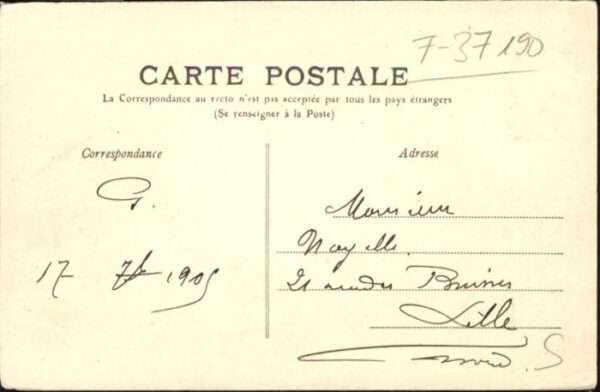 7-37190
CARTE POSTALE
La Correspondance au recto n'est pas acceptée par tous les pays étrangers
(Se renseigner à la Poste)
Correspondance
Adresse
G.
17 7bre 1905
Monsieur
21 rue des Buisses
Lille
Nord
S